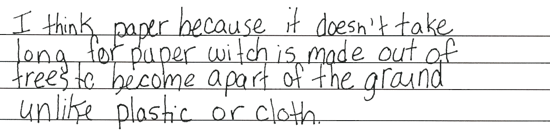 I think paper because it doesn't take
long for puper witch is made out of
trees to become apart of the graind
unlike plastic or cloth.